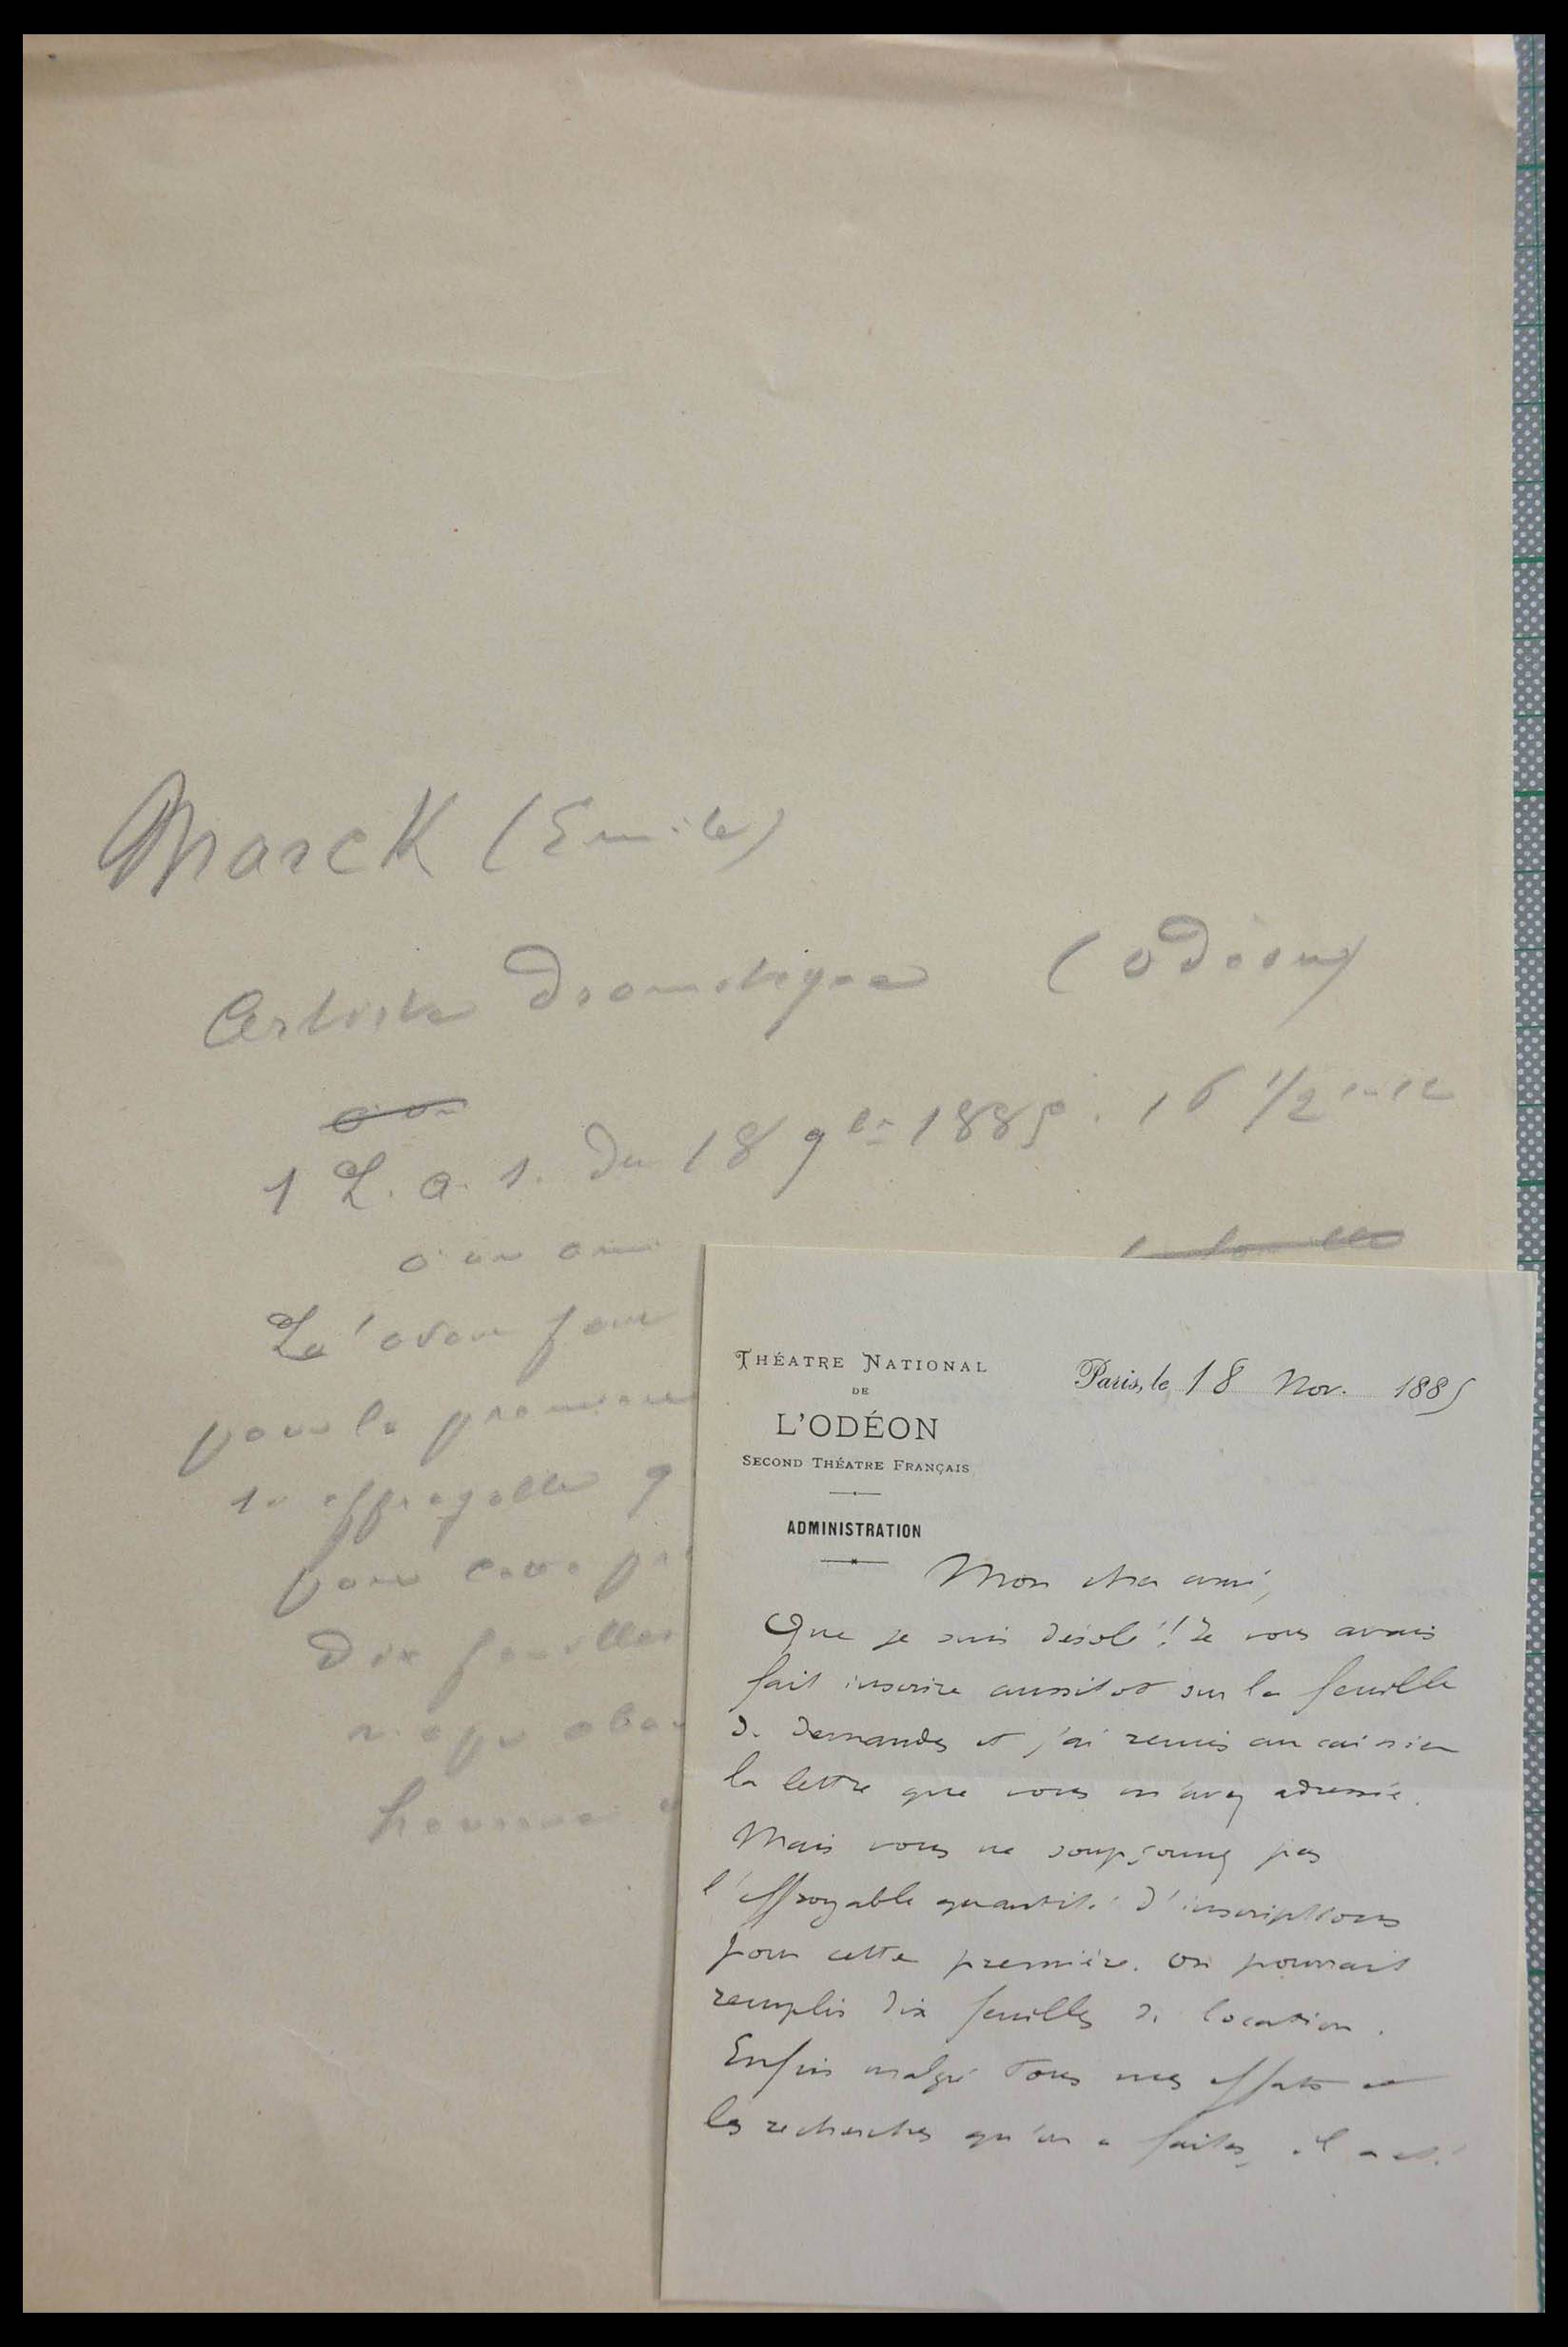 Marck (Emile)
Artiste Dramatique (Odéon)
1 L. a. s. du 18 9bre 1885. 1 p 1/2 in-12
a un ami
pour la première
Dix feuilles
THÉATRE NATIONAL
DE
L'ODÉON
SECOND THÉATRE FRANÇAIS
ADMINISTRATION
Paris, le 18 Nov. 1885
Mon cher ami,
Que je suis désolé! Je vous avais
fait inscrire aussitot sur la feuille
de demandes et j'ai remis au caissier
la lettre que vous m'avez adressée.
Mais vous ne soupçonnez pas
l'effroyable quantité d'inscriptions
pour cette première. On pourrait
remplir dix feuilles de location.
Enfin malgré tous mes efforts et
les recherches qu'on a faites, il a été